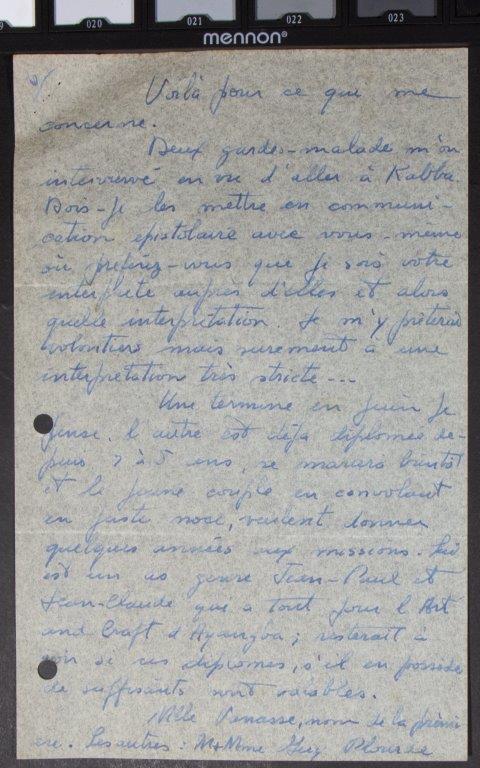 020 021 022 023
mennon®
Voilà pour ce que me
concerne.
Deux gardes-malade m'on
interviewé en vue d'aller à Kabba.
Dois-je les mettre en communi-
cation epistolaire avec vous-même
où préférez-vous que je sois votre
interprète auprès d'elles et alors
quelle interprétation. Je m'y prêterai
volontiers mais surement à une
interprétation très stricte ---
Une termine en juin je
pense. l'autre est déja diplomée de-
puis à 5 ans, se mariera bientôt
et le jeune couple en convolant
en juste noce, veulent donner
quelques années aux missions. Lui
est un as genre Jean-Paul et
Jean-Claude que a tout pour l'Art
and Craft d'Ayangba; resterait à
voir si ses diplomes, s'il en possède
de suffisants sont valables.
Mlle nom de la premi
ère. Les autres: M+Mme Guy Plourde